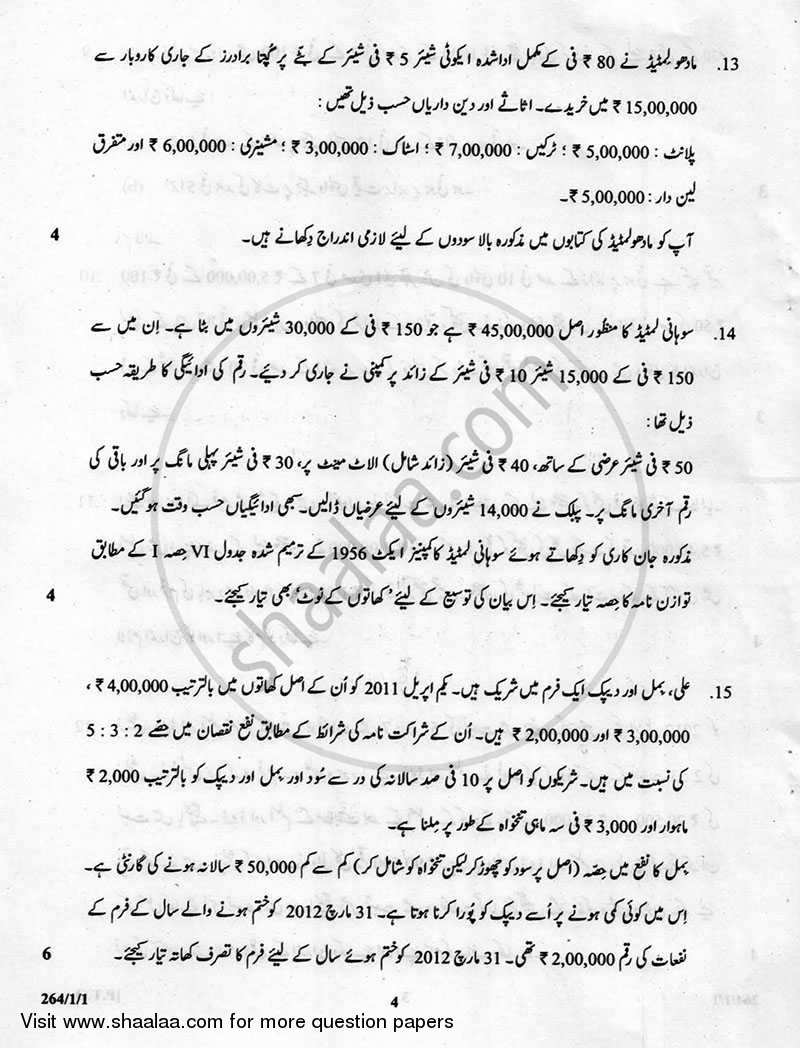 13. مادھو لمیٹیڈ نے 80 ₹ فی کے مکمل اداشدہ ایکوٹی شیئر 5 ₹ فی شیئر کے بٹے پر گپتا برادرز کے جاری کاروبار سے
15,00,000 ₹ میں خریدے۔ اثاثے اور دین داریاں حسب ذیل تھیں :
پلانٹ : 5,00,000 ₹ ؛ ٹرکیں : 7,00,000 ₹ ؛ اسٹاک : 3,00,000 ₹ ؛ مشینری : 6,00,000 ₹ اور متفرق
لین دار : 5,00,000 ₹۔
آپ کو مادھو لمیٹیڈ کی کتابوں میں مذکورہ بالا سودوں کے لیئے لازمی اندراج دِکھانے ہیں۔ 4
14. سوہانی لمٹیڈ کا منظور اصل 45,00,000 ₹ ہے جو 150 ₹ فی کے 30,000 شیئروں میں بٹا ہے۔ اِن میں سے
150 ₹ فی کے 15,000 شیئر 10 ₹ فی شیئر کے زائد پر کمپنی نے جاری کر دیئے۔ رقم کی ادائیگی کا طریقہ حسب
ذیل تھا :
50 ₹ فی شیئر عرضی کے ساتھ، 40 ₹ فی شیئر (زائد شامل) الاٹ مینٹ پر، 30 ₹ فی شیئر پہلی مانگ پر اور باقی کی
رقم آخری مانگ پر۔ پبلک نے 14,000 شیئروں کے لیئے عرضیاں ڈالیں۔ سبھی ادائیگیاں حسب وقت ہو گئیں۔
مذکورہ جان کاری کو دِکھاتے ہوئے سوہانی لمٹیڈ کا کمپنیز ایکٹ 1956 کے ترمیم شدہ جدول VI حِصہ I کے مطابق
توازن نامہ کا حِصہ تیار کیجئے۔ اِس بیان کی توسیع کے لیئے ’کھاتوں کے نوٹ‘ بھی تیار کیجئے۔ 4
15. علی، بمل اور دیپک ایک فرم میں شریک ہیں۔ یکم اپریل 2011 کو اُن کے اصل کھاتوں میں بالترتیب 4,00,000 ₹ ،
3,00,000 ₹ اور 2,00,000 ₹ ہیں۔ اُن کے شراکت نامہ کی شرائط کے مطابق نفع نقصان میں حِصّے 2 : 3 : 5
کی نسبت میں ہیں۔ شریکوں کو اصل پر 10 فی صد سالانہ کی در سے سُود اور بمل اور دیپک کو بالترتیب 2,000 ₹
ماہوار اور 3,000 ₹ فی سہ ماہی تنخواہ کے طور پر مِلنا ہے۔
بمل کا نفع میں حِصّہ (اصل پر سود کو چھوڑ کر لیکن تنخواہ کو شامل کر) کم سے کم 50,000 ₹ سالانہ ہونے کی گارنٹی ہے۔
اِس میں کوئی کمی ہونے پر اُسے دیپک کو پُورا کرنا ہوتا ہے۔ 31 مارچ 2012 کو ختم ہونے والے سال کے فرم کے
نفعات کی رقم 2,00,000 ₹ تھی۔ 31 مارچ 2012 کو ختم ہوئے سال کے لیئے فرم کا تصرف کھاتہ تیار کیجئے۔ 6
264/1/1 4
Visit www.shaalaa.com for more question papers
shaalaa.com